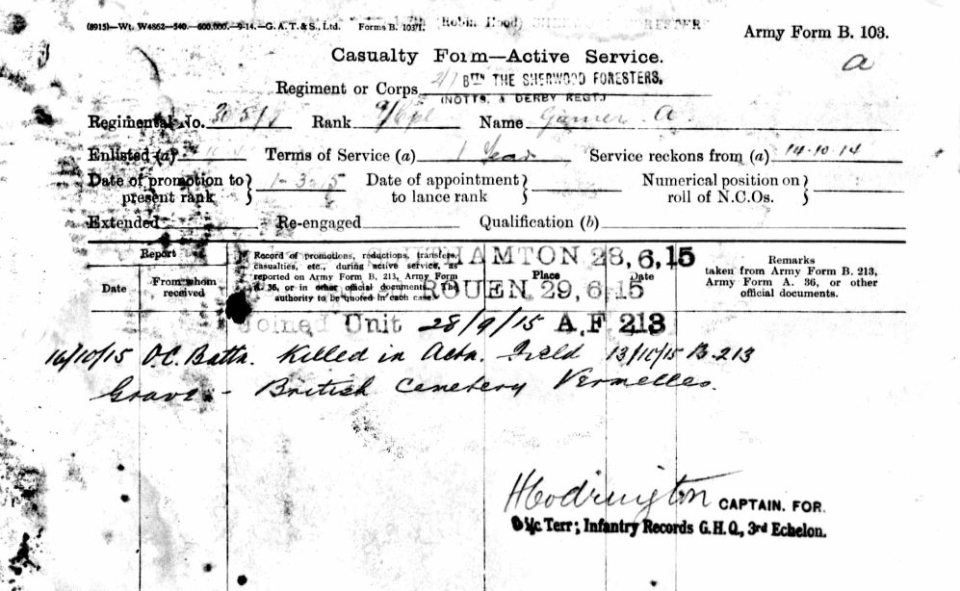 (8915)—Wt. W4862—540.—600,000.—9-14.—G. A. T. & S., Ltd. Forms B. 103/1. (Robin Hood)
Army Form B. 103.
Casualty Form—Active Service.
a
Regiment or Corps 2/7 BTN THE SHERWOOD FORESTERS,
(NOTTS. & DERBY REGT.)
Regimental No. Rank Name A.
Enlisted (a) Terms of Service (a) 1 Year Service reckons from (a) 14.10.14
Date of promotion to present rank 1-3-15 Date of appointment to lance rank Numerical position on roll of N.C.Os.
Extended Re-engaged Qualification (b)
Report
Date From whom received
Record of promotions, reductions, transfers, casualties, etc., during active service, as reported on Army Form B. 213, Army Form A. 36, or in other official documents. The authority to be quoted in each case.
Place
Date
Remarks taken from Army Form B. 213, Army Form A. 36, or other official documents.
HAMTON 28,6,15
ROUEN 29,6,15
Joined Unit 28/9/15 A.F 213
16/10/15 O.C. Battn. Killed in Actn. Field 13/10/15 B.213
Grave - British Cemetery Vermelles.
HCodrington CAPTAIN. FOR.
O i/c Terr; Infantry Records G.H.Q., 3rd Echelon.